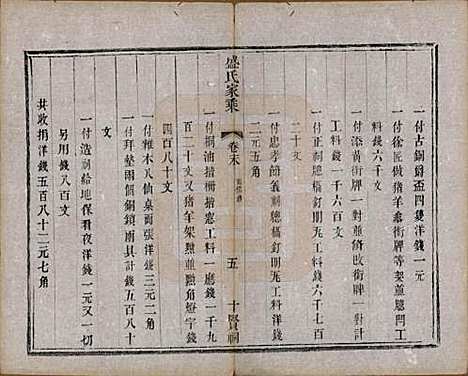 一付古銅爵盃四隻洋錢一元
一付徐匠做猪羊㮣衔牌等架並牕門工
料錢六千文
一付添刷銜牌一對並脩改銜牌一對計
工料錢一千六百文
一付正廟牕槅釘明瓦工料錢六千七百
二十文
一付忠孝節義廟牕槅釘明瓦工料洋錢
二元五角
盛氏家乘
卷末
五
十賢祠
一付桐油揩栅揩窻工料一應錢一千九
百二十文又猪羊架㸃並㸃角燈字錢
四百八十文
一付雜木八仙桌兩張洋錢三元二角
一付拜墊雨傘銅鎖廟具計錢五百八十
文
一付造廟給地保看夜洋錢一元又一切
另用錢八百文
共收捐洋錢五百八十二元七角